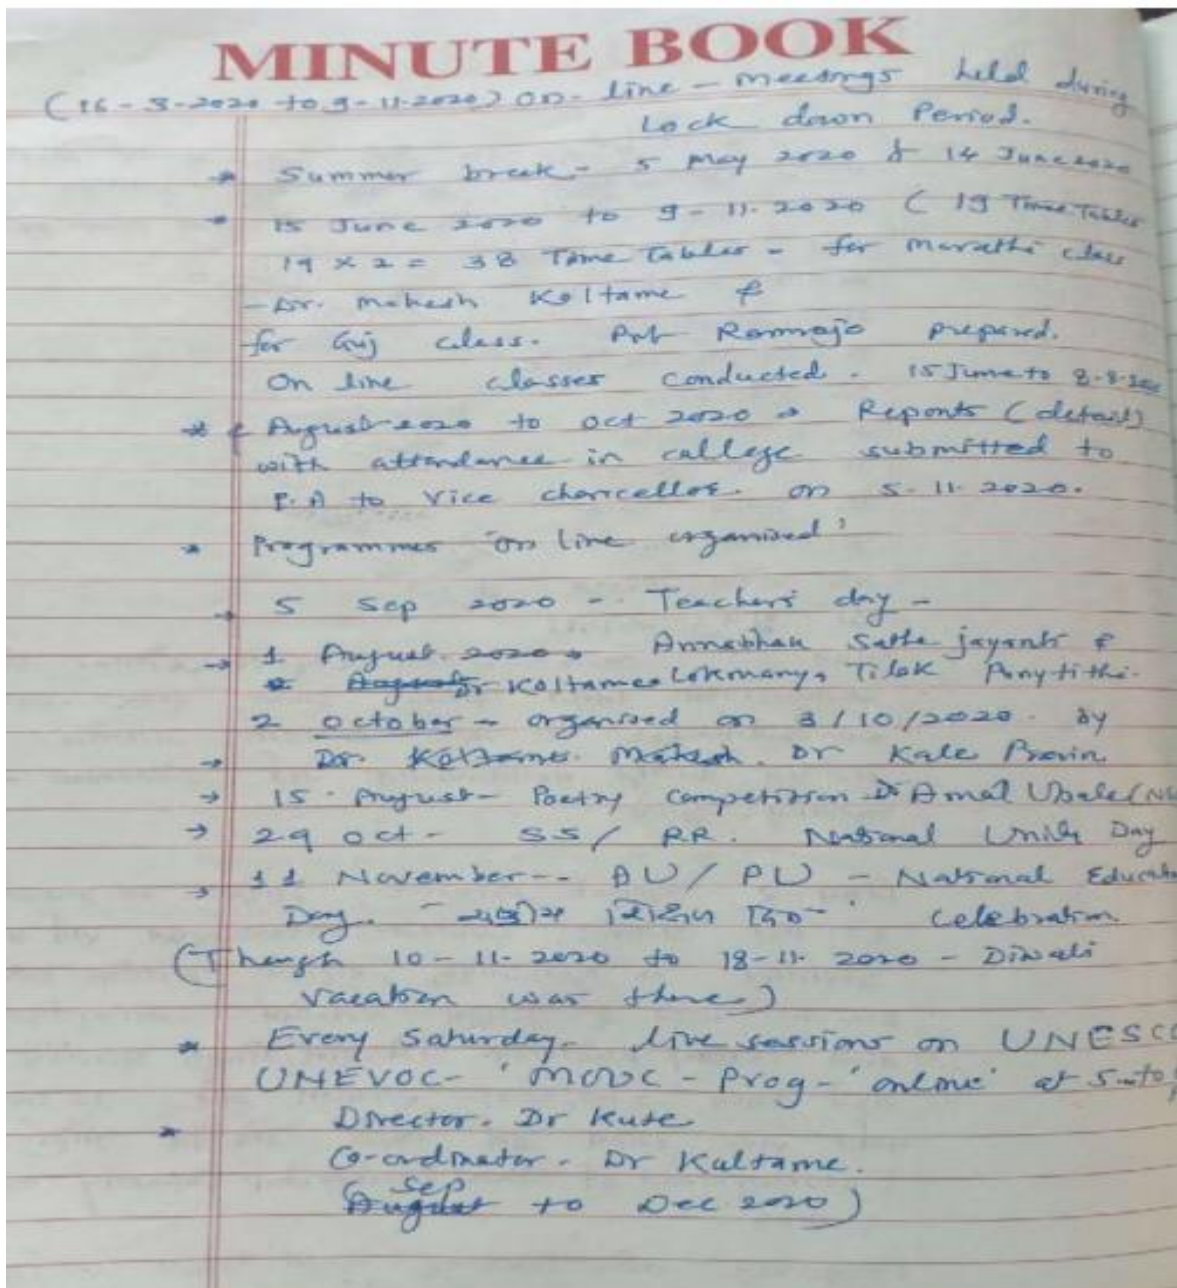 MINUTE BOOK
(16-3-2020 to 9-11-2020) on-line - meetings held during
Lock down Period.
* Summer break - 5 May 2020 & 14 June 2020
* 15 June 2020 to 9-11-2020 ( 19 Time Tables
19 x 2 = 38 Time Tables - for Marathi class
- Dr. Mahesh Koltame &
for Guj class. Prof Ramraje prepared.
On line classes conducted. 15 June to 8-8-2020
* & August 2020 to Oct 2020 → Reports (detail)
with attendance in college submitted to
P.A to Vice chancellor. on 5-11-2020.
* Programmes 'on line organised'
→ 5 Sep 2020 - Teachers' day -
→ 1 August 2020 → Annabhau Sathe jayanti &
August Dr Koltame Lokmanya Tilak Punytithi.
2 October - organised on 3/10/2020. by
→ Dr. Koltame. Mahesh. Dr Kale Pravin
→ 15. August - Poetry Competition Dr Amal Ubale
→ 29 oct - SS/ RR. National Unity Day
→ 11 November -- AU/PU - National Education
Day. दिन - celebration
(Though 10-11-2020 to 18-11-2020 - Diwali
vacation was there)
* Every Saturday - live sessions on UNESCO
UNEVOC - 'MOOC - Prog - 'online' at 5
* Director. Dr Kute
Co-ordinator - Dr Kultame.
sep
(August to Dec 2020)